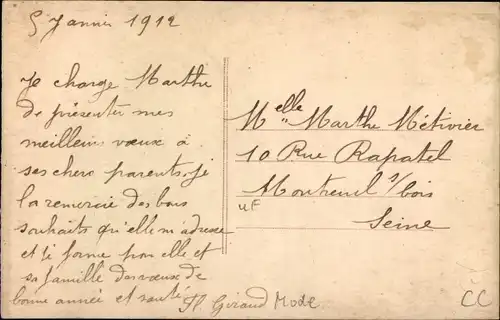 5 Janvier 1912
Je charge Marthe
de présenter mes
meilleurs vœux à
ses chers parents, je
la remercie des bons
souhaits qu'elle m'adresse
et je forme pour elle et
sa famille des vœux de
bonne année et santé
H. Giraud
Mode
Melle Marthe Métivier
10 Rue Rapatel
Montreuil s/bois
Seine
uF
CC